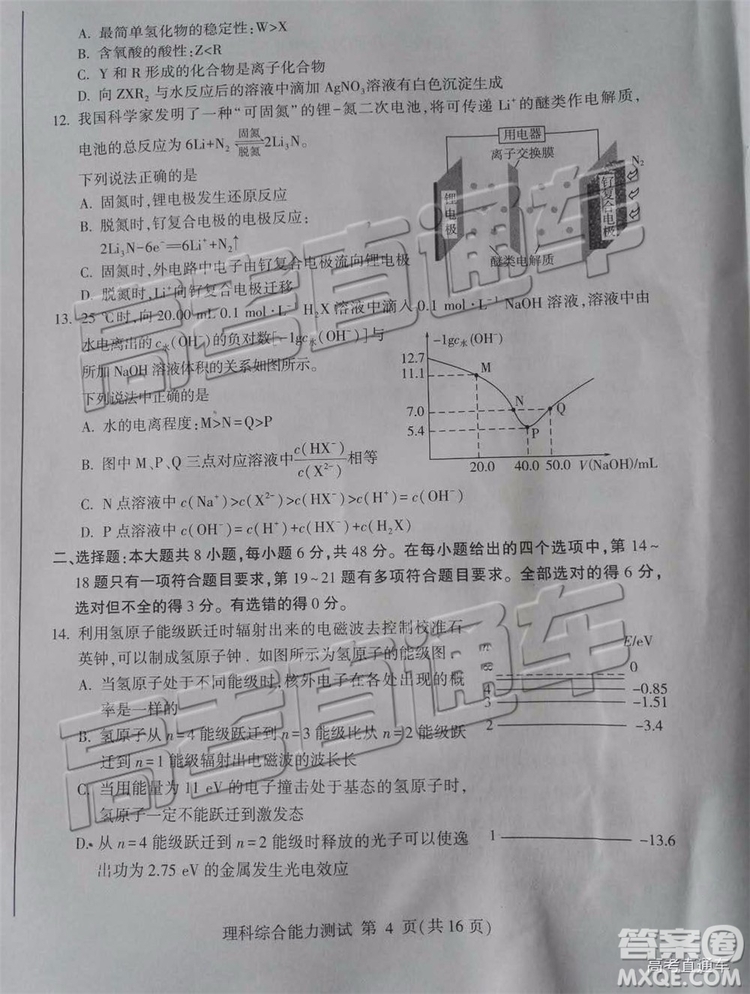 A. 最简单氢化物的稳定性:W>X
B. 含氧酸的酸性:Z<R
C. Y 和 R 形成的化合物是离子化合物
D. 向 ZXR₂ 与水反应后的溶液中滴加 AgNO₃ 溶液有白色沉淀生成
12. 我国科学家发明了一种“可固氮”的锂-氮二次电池,将可传递 Li⁺的醚类作电解质,
电池的总反应为 6Li+N₂ 固氮⇌脱氮 2Li₃N。
下列说法正确的是
A. 固氮时,锂电极发生还原反应
B. 脱氮时,钌复合电极的电极反应:
2Li₃N-6e⁻═6Li⁺+N₂↑
C. 固氮时,外电路中电子由钌复合电极流向锂电极
D. 脱氮时,Li⁺向钌复合电极迁移
用电器
离子交换膜
N₂
锂电极
钌复合电极
醚类电解质
13. 25 ℃时,向 20.00 mL 0.1 mol·L⁻¹ H₂X 溶液中滴入 0.1 mol·L⁻¹ NaOH 溶液,溶液中由
水电离出的 c水(OH⁻)的负对数[-lgc水(OH⁻)]与
所加 NaOH 溶液体积的关系如图所示。
下列说法中正确的是
A. 水的电离程度:M>N=Q>P
B. 图中 M、P、Q 三点对应溶液中c(HX⁻)/c(X²⁻)相等
C. N 点溶液中 c(Na⁺)>c(X²⁻)>c(HX⁻)>c(H⁺)=c(OH⁻)
D. P 点溶液中 c(OH⁻)=c(H⁺)+c(HX⁻)+c(H₂X)
-lgc水(OH⁻)
12.7
11.1
7.0
5.4
M
N
Q
P
20.0 40.0 50.0 V(NaOH)/mL
二、选择题:本大题共 8 小题,每小题 6 分,共 48 分。在每小题给出的四个选项中,第 14~
18 题只有一项符合题目要求,第 19~21 题有多项符合题目要求。全部选对的得 6 分,
选对但不全的得 3 分。有选错的得 0 分。
14. 利用氢原子能级跃迁时辐射出来的电磁波去控制校准石
英钟,可以制成氢原子钟．如图所示为氢原子的能级图
A. 当氢原子处于不同能级时,核外电子在各处出现的概
率是一样的
B. 氢原子从 n=4 能级跃迁到 n=3 能级比从 n=2 能级跃
迁到 n=1 能级辐射出电磁波的波长长
C. 当用能量为 11 eV 的电子撞击处于基态的氢原子时,
氢原子一定不能跃迁到激发态
D. 从 n=4 能级跃迁到 n=2 能级时释放的光子可以使逸
出功为 2.75 eV 的金属发生光电效应
n E/eV
∞ 0
4 -0.85
3 -1.51
2 -3.4
1 -13.6
理科综合能力测试 第 4 页(共 16 页)
高考直通车
高考直通车
答案圈
高考直通车
MXQE.COM